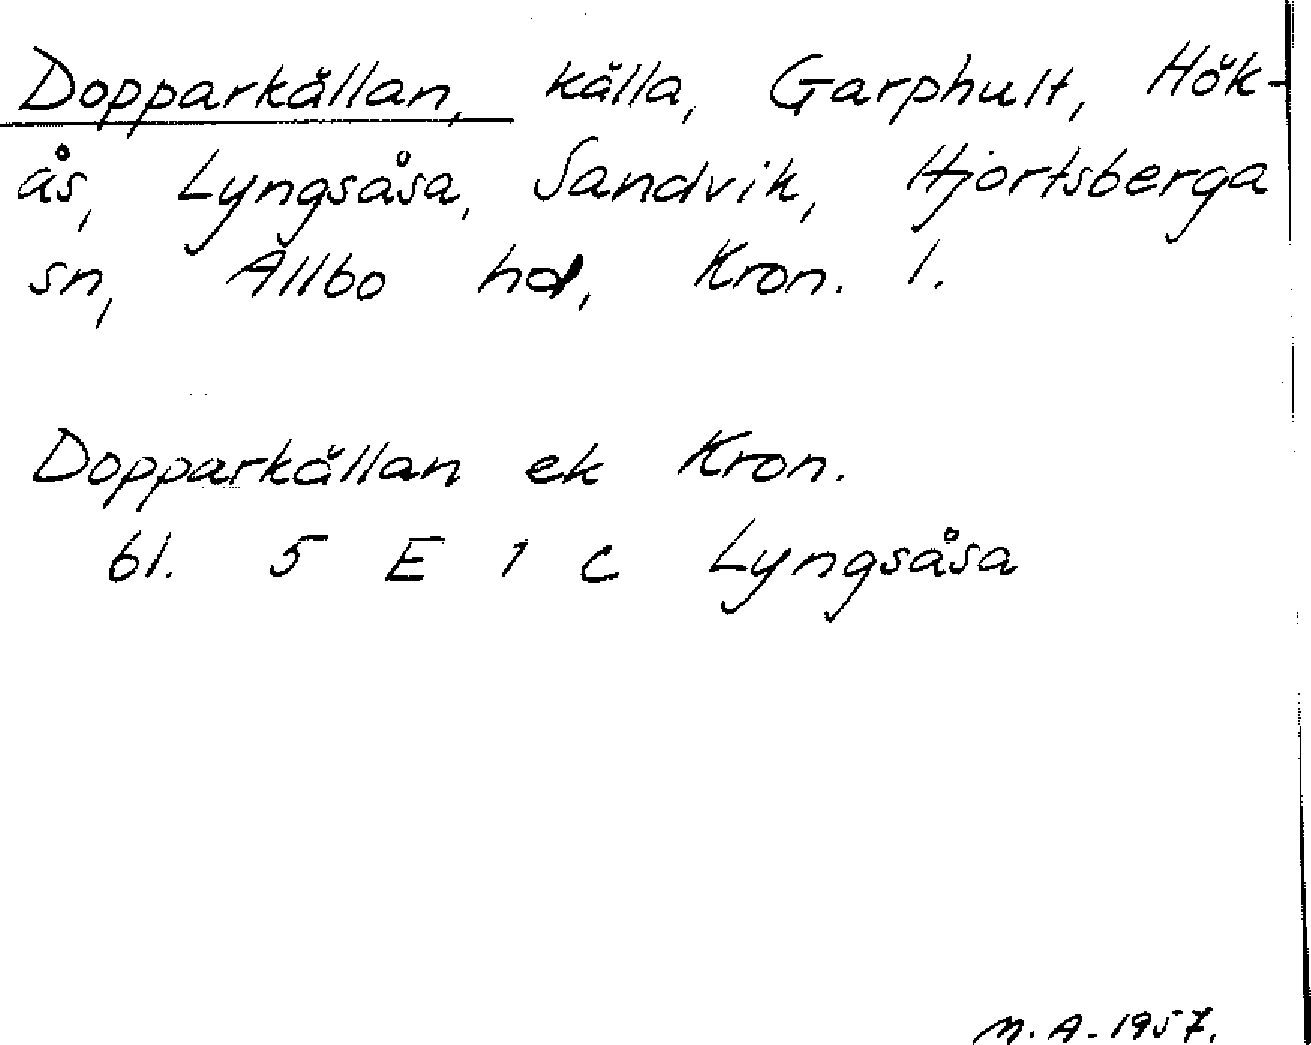 Dopparkällan, källa, Garphult, Hök-
ås, Lyngsåsa, Sandvik, Hjortsberga
sn, Allbo hd, Kron. l.
Dopparkällan ek Kron.
bl. 5 E 1 c Lyngsåsa
M. A. 1957.